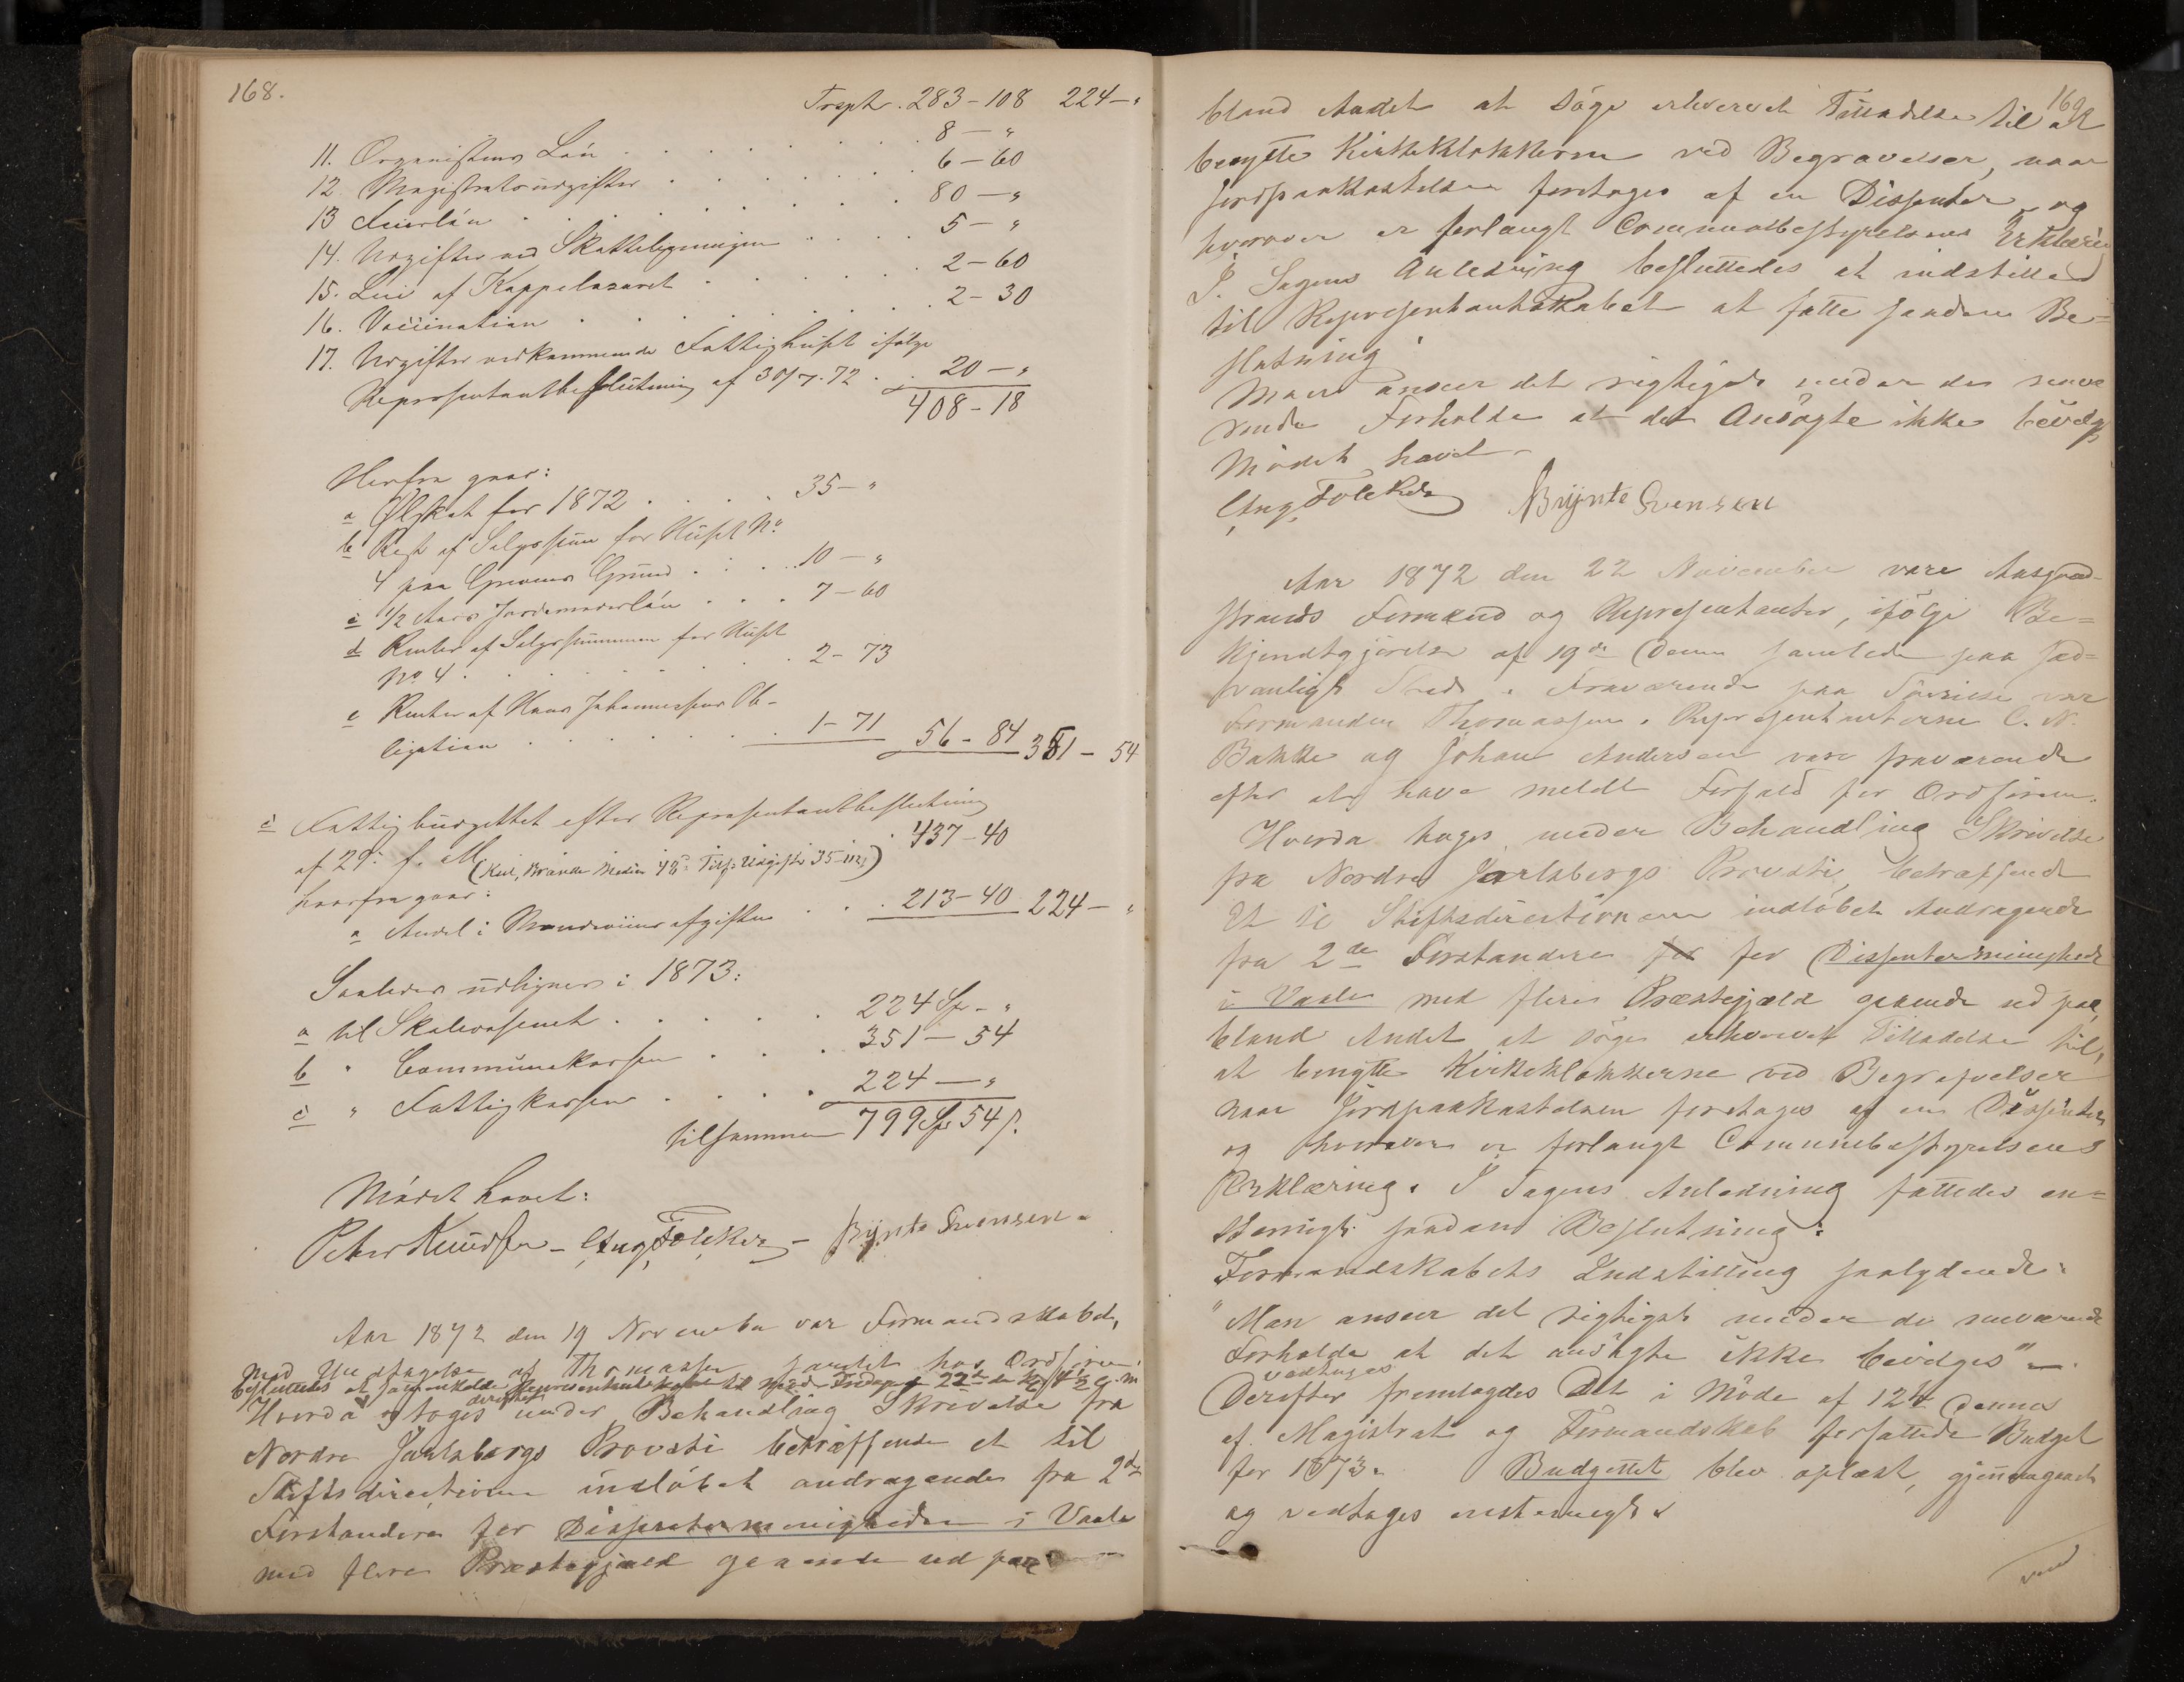 168.
Trsprt. 283-108 224-"
11. Organistens Løn . . . . . . 8-"
12. Magistratsudgifter . . . . . . 6-60
13 Lærerløn . . . . . . 80-"
14. Udgifter ved Skatteligningen . . . . 5-"
15. Leie af Koppelazaret . . . . . 2-60
16. Vaccination . . . . . . 2-30
17. Udgifter vedkommende Fattighuset ifølge
Repræsentantbeslutning af 30/7.72 . . 20-"
408-18
Herfra gaar:
a Ølskat for 1872 . . . . . 35-"
b Rest af Salgssum for Huset No
4 paa Grevens Grund . . . . 10-"
c 1/2 Aars Jordemoderløn . . . 7-60
d Renter af Salgssummen for Huset
No 4 . . . . . . 2-73
e Renter af Hans Johannessens Ob-
ligation . . . . . . 1-71 56-84 351-54
c Fattigbudgettet efter Repræsentantbeslutning
af 29 f. M. 437-40
hvorfra gaar:
a Andel i Brændeviinsafgiften . . . 213-40 224-"
Saaledes udlignes i 1873:
a til Skolevæsenet . . . . . 224 Sp-"
b " Communekassen . . . 351-54
c " Fattigkassen . . . . 224-"
tilsammen 799 Sp 54 s.
Mødet hævet:
Peter Knudsen - Aug. Folckers - Brynte Svensen
Aar 1872 den 19 November var Formandskabet,
med Undtagelse af Thomassen samlet hos Ordføreren.
besluttedes at sammenkalde Repræsentantskabet til Møde Fredag 22de ds Kl 4 1/2 e.m
Hvorda og toges derefter under Behandling Skrivelse fra
Nordre Jarlsbergs Provsti betræffende et til
Stiftsdirectionen indløbet andragende fra 2de
Forstandere for Dissentermenigheden i Vaale
med flere Præstegjæld gaaende ud paa
169
bland Andet at søge erhvervet Tilladelse til at
benytte Kirkeklokkerne ved Begravelser, naar
Jordpaakastelsen foretages af en Dissenter og
hvorover er forlangt Communebestyrelsens Erklæring
I Sagens Anledning besluttedes at indstille
til Repræsentantskabet at fatte saadan Be-
slutning
Man anseer det rigtigst under de nuvæ
rende Forholde at det Ansøgte ikke bevilges
Mødet hævet
Aug. Folckers Brynte Svensen
Aar 1872 den 22 November vare Aasgaard-
strands Formænd og Repræsentanter, ifølge Be=
kjendtgjørelse af 19de Dennes samlede paa sæd=
vanligt Sted. Fraværende paa Søreise var
Formanden Thomassen. Repræsentanterne C. N.
Bakke og Johan Andersen vare fraværende
efter at have meldt Forfald for Ordføreren.
Hvorda toges under Behandling Skrivelse
fra Nordre Jarlsbergs Provsti, betræffende
Et til Stiftsdirectionen indløbet Andragende
fra 2de Forstandere for for Dissentermenighede
i Vaale med flere Præstegjæld gaaende ud paa,
bland Andet at søge erhvervet Tilladelse til,
at benytte Kirkeklokkerne ved Begravelser
naar Jordpaakastelsen foretages af en Dissenter
og hvorover er forlangt Communebestyrelsens
Erklæring. I Sagens Anledning fattedes en=
stemmigt saadan Beslutning:
Formandskabets Indstilling saalydende:
"Man anseer det rigtigst under de nuværende
Forholde at det ansøgte ikke bevilges" -
vedtages
Derefter fremlagdes Det i Møde af 12te Dennes
af Magistrat og Formandskab forfattede Budget
for 1873. Budgettet blev oplæst, gjennemgaaet
og vedtages enstemmigt.